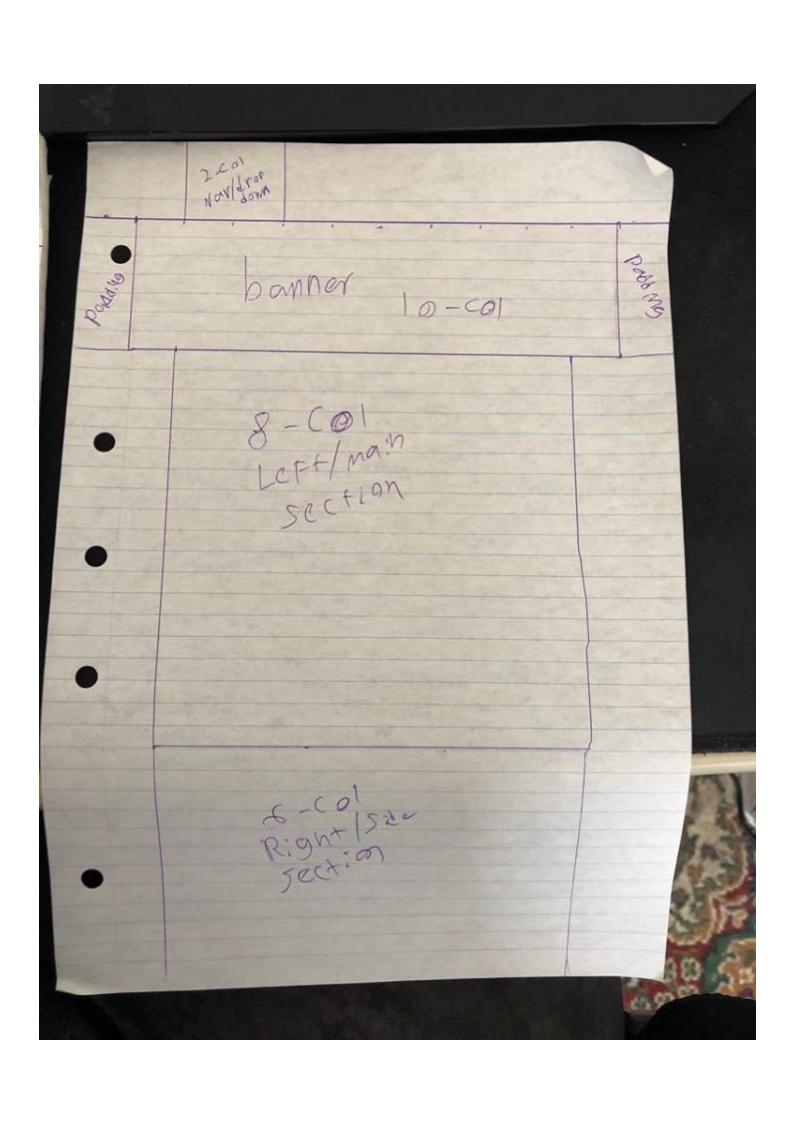 2-col
Nav/drop
down
Padding
banner
10-col
Padding
8-Col
Left/main
section
6-Col
Right/Side
section